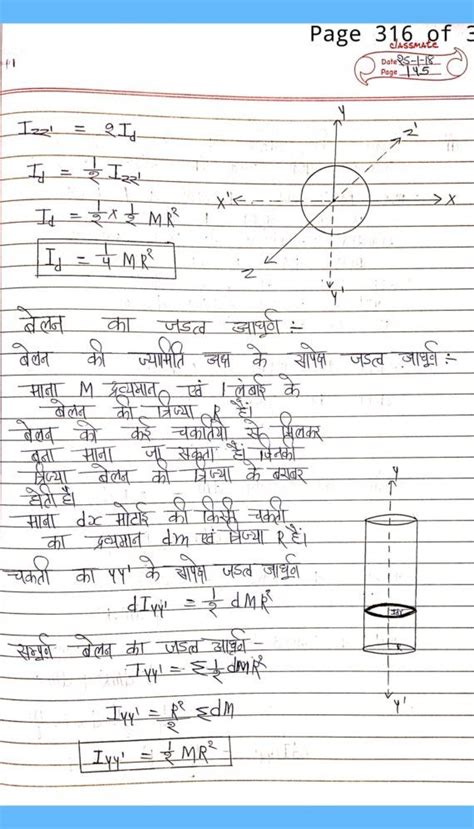 Page 316 of 3
CLASSMATE
Date 25-1-18
Page 145
Izz' = 2Id
Id = 1/2 Izz'
Id = 1/2 × 1/2 MR²
Id = 1/4 MR²
Y
Z'
X'
X
Z
Y'
बेलन का जडत्व आघूर्ण :-
बेलन की ज्यामिति अक्ष के सापेक्ष जडत्व आघूर्ण :-
माना M द्रव्यमान एवं l लंबाई के
बेलन की त्रिज्या R है।
बेलन को कई चकतियो से मिलकर
बना माना जा सकता है। जिनकी
त्रिज्या बेलन की त्रिज्या के बराबर
होती है।
माना dx मोटाई की किसी चकती
का द्रव्यमान dm एवं त्रिज्या R है।
चकती का YY' के सापेक्ष जडत्व आघूर्ण
dIyy' = 1/2 dMR²
सम्पूर्ण बेलन का जडत्व आघूर्ण -
Iyy' = Σ 1/2 dMR²
Iyy' = R²/2 Σdm
Iyy' = 1/2 MR²
Y
Y'